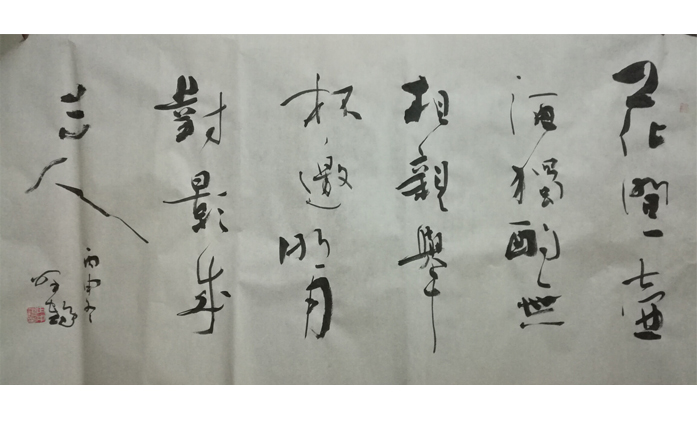 花間一壺
酒獨酌無
相親舉
杯邀明月
對影成
三人
丙申冬